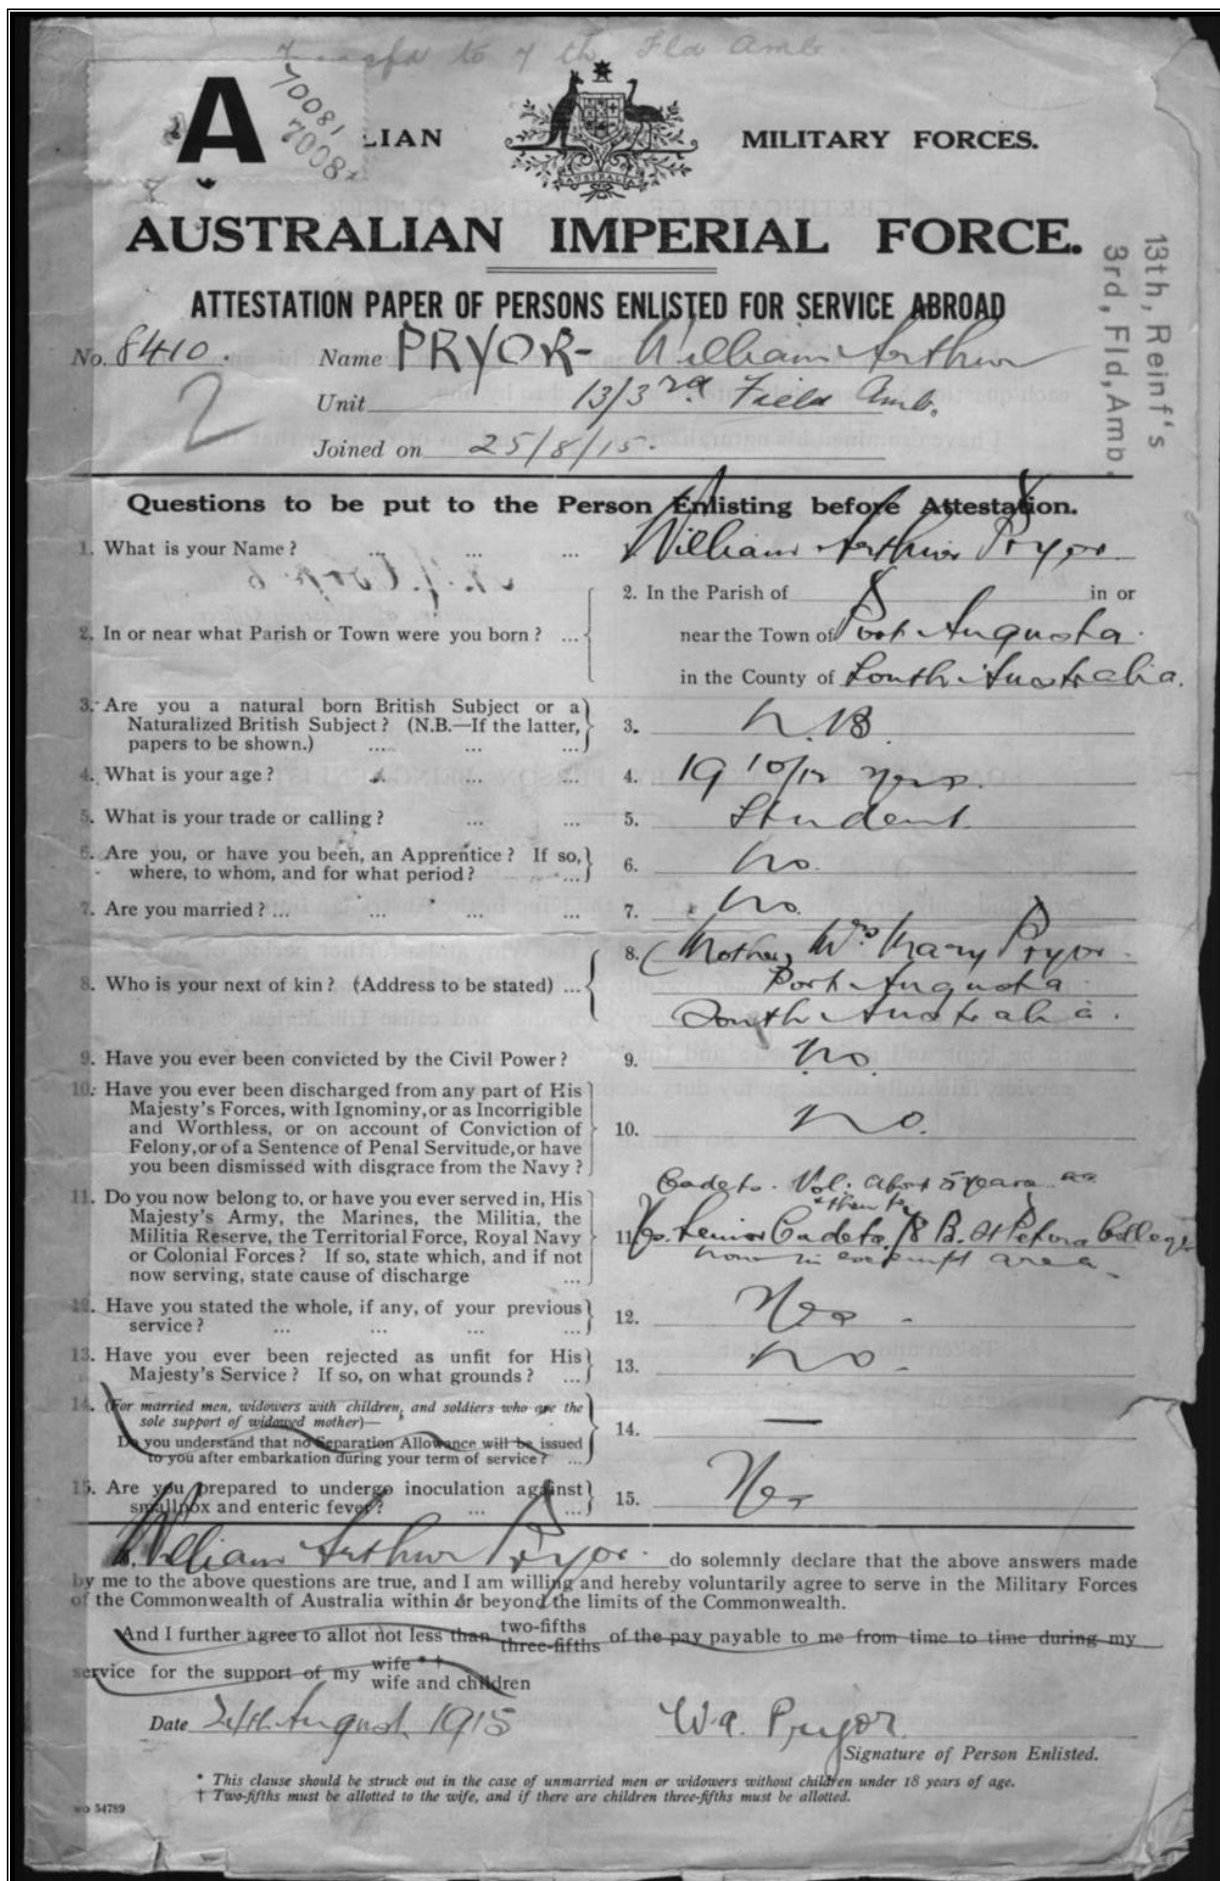 Transfd to 7 th Fld Amb
A
70081
7008
LIAN
MILITARY FORCES.
AUSTRALIA
AUSTRALIAN IMPERIAL FORCE.
13th, Reinf's
3rd, Fld, Amb,
ATTESTATION PAPER OF PERSONS ENLISTED FOR SERVICE ABROAD
No. 8410. Name PRYOR- William Arthur
2
Unit 13/3rd Field Amb.
Joined on 25/8/15.
Questions to be put to the Person Enlisting before Attestation.
1. What is your Name? ... ... ... William Arthur Pryor
2. In the Parish of in or
2. In or near what Parish or Town were you born? ... near the Town of Port Augusta.
in the County of South Australia.
3. Are you a natural born British Subject or a
Naturalized British Subject? (N.B.—If the latter, 3. N.B.
papers to be shown.) ... ... ...
4. What is your age? ... ... 4. 19 10/12 years.
5. What is your trade or calling? ... ... 5. Student.
6. Are you, or have you been, an Apprentice? If so, 6. No.
where, to whom, and for what period? ...
7. Are you married? ... ... ... ... 7. No.
8. (Mother) Mrs Mary Pryor.
8. Who is your next of kin? (Address to be stated) ... Port Augusta
South Australia.
9. Have you ever been convicted by the Civil Power? 9. No.
10. Have you ever been discharged from any part of His
Majesty's Forces, with Ignominy, or as Incorrigible
and Worthless, or on account of Conviction of 10. No.
Felony, or of a Sentence of Penal Servitude, or have
you been dismissed with disgrace from the Navy?
Cadets. Vol. about 5 years
11. Do you now belong to, or have you ever served in, His
Majesty's Army, the Marines, the Militia, the
Militia Reserve, the Territorial Force, Royal Navy 11. Senior Cadets, 78 B. St Peters College
or Colonial Forces? If so, state which, and if not now in exempt area.
now serving, state cause of discharge ...
12. Have you stated the whole, if any, of your previous 12. Yes.
service? ... ... ... ...
13. Have you ever been rejected as unfit for His 13. No.
Majesty's Service? If so, on what grounds? ...
14. (For married men, widowers with children, and soldiers who are the
sole support of widowed mother)— 14. —
Do you understand that no Separation Allowance will be issued
to you after embarkation during your term of service? ...
15. Are you prepared to undergo inoculation against 15. Yes
smallpox and enteric fever? ... ...
I, William Arthur Pryor. do solemnly declare that the above answers made
by me to the above questions are true, and I am willing and hereby voluntarily agree to serve in the Military Forces
of the Commonwealth of Australia within or beyond the limits of the Commonwealth.
And I further agree to allot not less than two-fifths three-fifths of the pay payable to me from time to time during my
service for the support of my wife *† wife and children
Date 24th August 1915 W.A. Pryor.
Signature of Person Enlisted.
* This clause should be struck out in the case of unmarried men or widowers without children under 18 years of age.
† Two-fifths must be allotted to the wife, and if there are children three-fifths must be allotted.
WO 54789